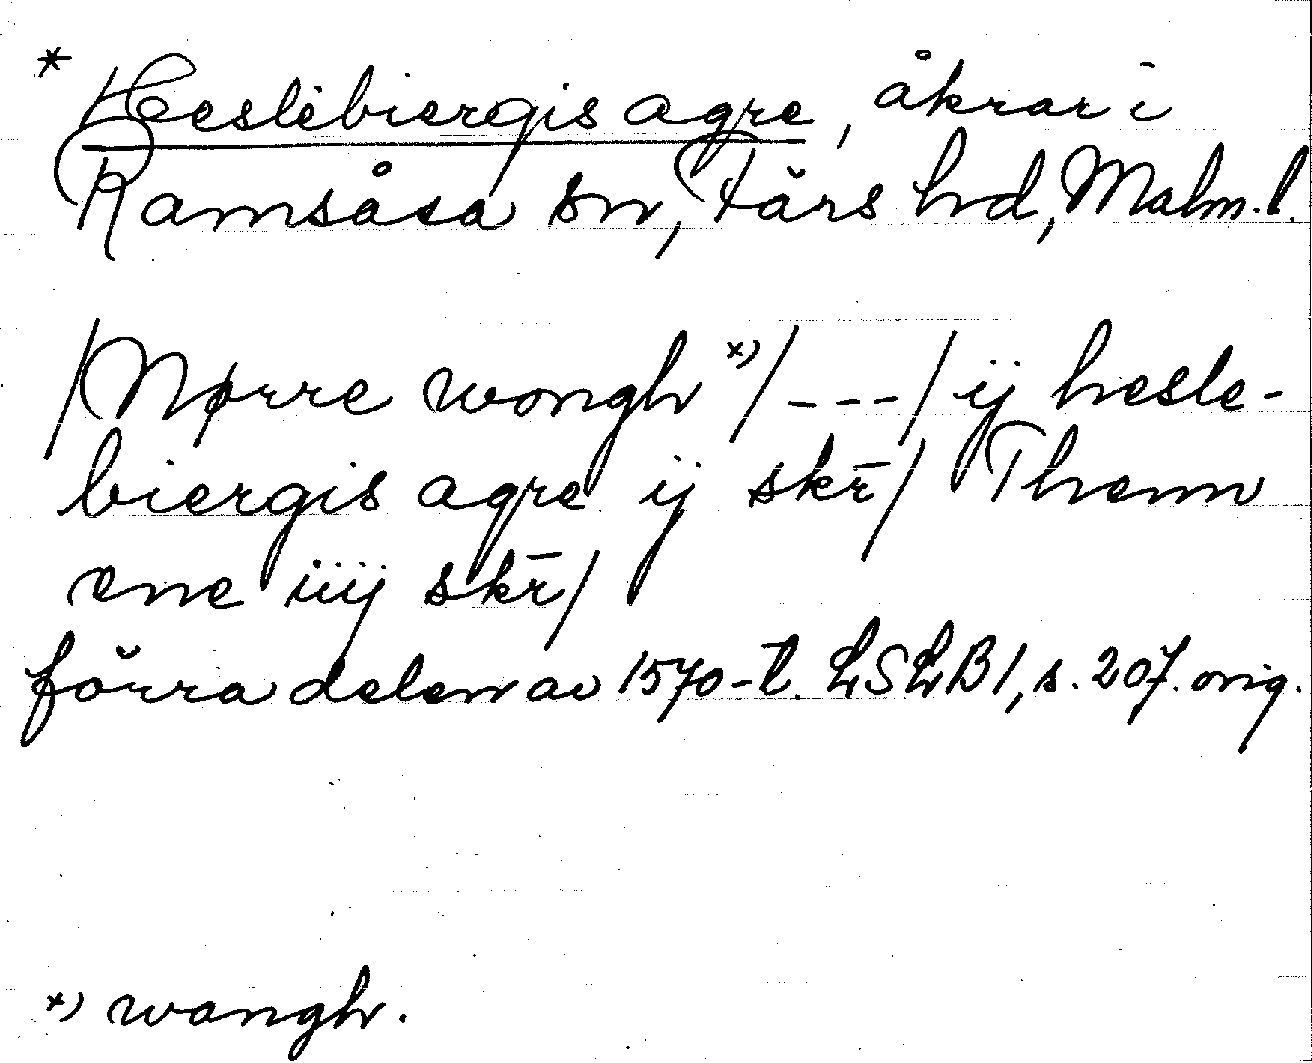 * Heslebiergis agre, åkrar i
Ramsåsa sn, Färs hd, Malm. l.
/Nørre wongh *)/ - - - / ij hesle-
biergis agre ij skr̄/ Thenn
ene iiij skr̄/
förra delen av 1570-t. LSLB1, s. 207. orig.
*) wangh.